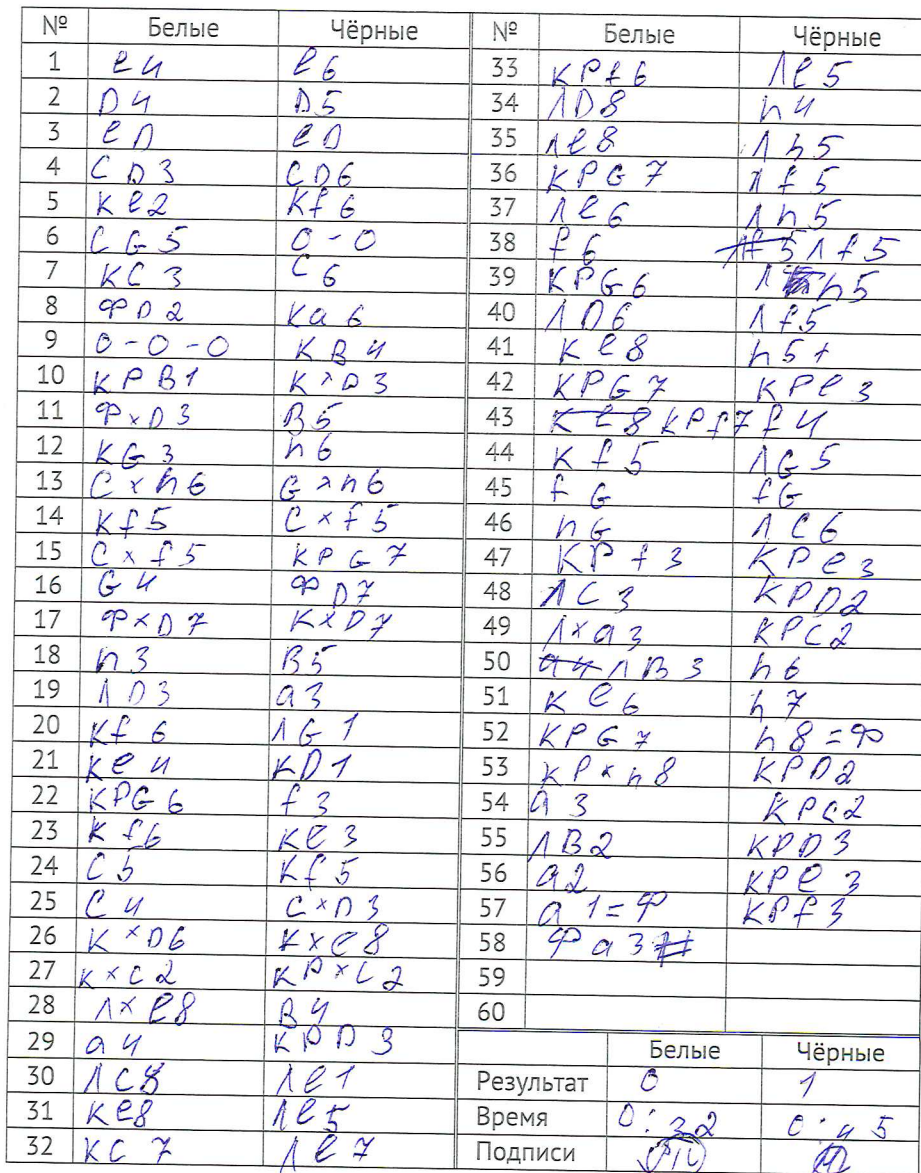 № Белые Чёрные
1 e4 e6
2 D4 D5
3 eD eD
4 CD3 CD6
5 Ke2 Kf6
6 CG5 0-0
7 KC3 C6
8 ФD2 Ka6
9 0-0-0 KB4
10 KPB1 K×D3
11 Ф×D3 B5
12 KG3 h6
13 C×h6 G×h6
14 Kf5 C×f5
15 C×f5 KPG7
16 G4 ФD7
17 Ф×D7 K×D7
18 h3 B5
19 ЛD3 a3
20 Kf6 ЛG1
21 Ke4 KD1
22 KPG6 f3
23 Kf6 Ke3
24 C5 Kf5
25 C4 C×D3
26 K×D6 K×e8
27 K×C2 KP×C2
28 Л×e8 B4
29 a4 KPD3
30 ЛC8 Лe1
31 Ke8 Лe5
32 KC7 Лe7
№ Белые Чёрные
33 KPf6 Лe5
34 ЛD8 h4
35 Лe8 Лh5
36 KPG7 Лf5
37 Лe6 Лh5
38 f6 Лf5
39 KPG6 Лh5
40 ЛD6 Лf5
41 Ke8 h5+
42 KPG7 KPe3
43 Ke8 KPf7 f4
44 Kf5 ЛG5
45 fG fG
46 hG ЛC6
47 KPf3 KPe3
48 ЛC3 KPD2
49 Л×a3 KPC2
50 a4 ЛB3 h6
51 Ke6 h7
52 KPG7 h8=Ф
53 KP×h8 KPD2
54 a3 KPC2
55 ЛB2 KPD3
56 a2 KPe3
57 a1=Ф KPf3
58 Фa3#
59
60
Белые Чёрные
Результат 0 1
Время 0:32 0:45
Подписи